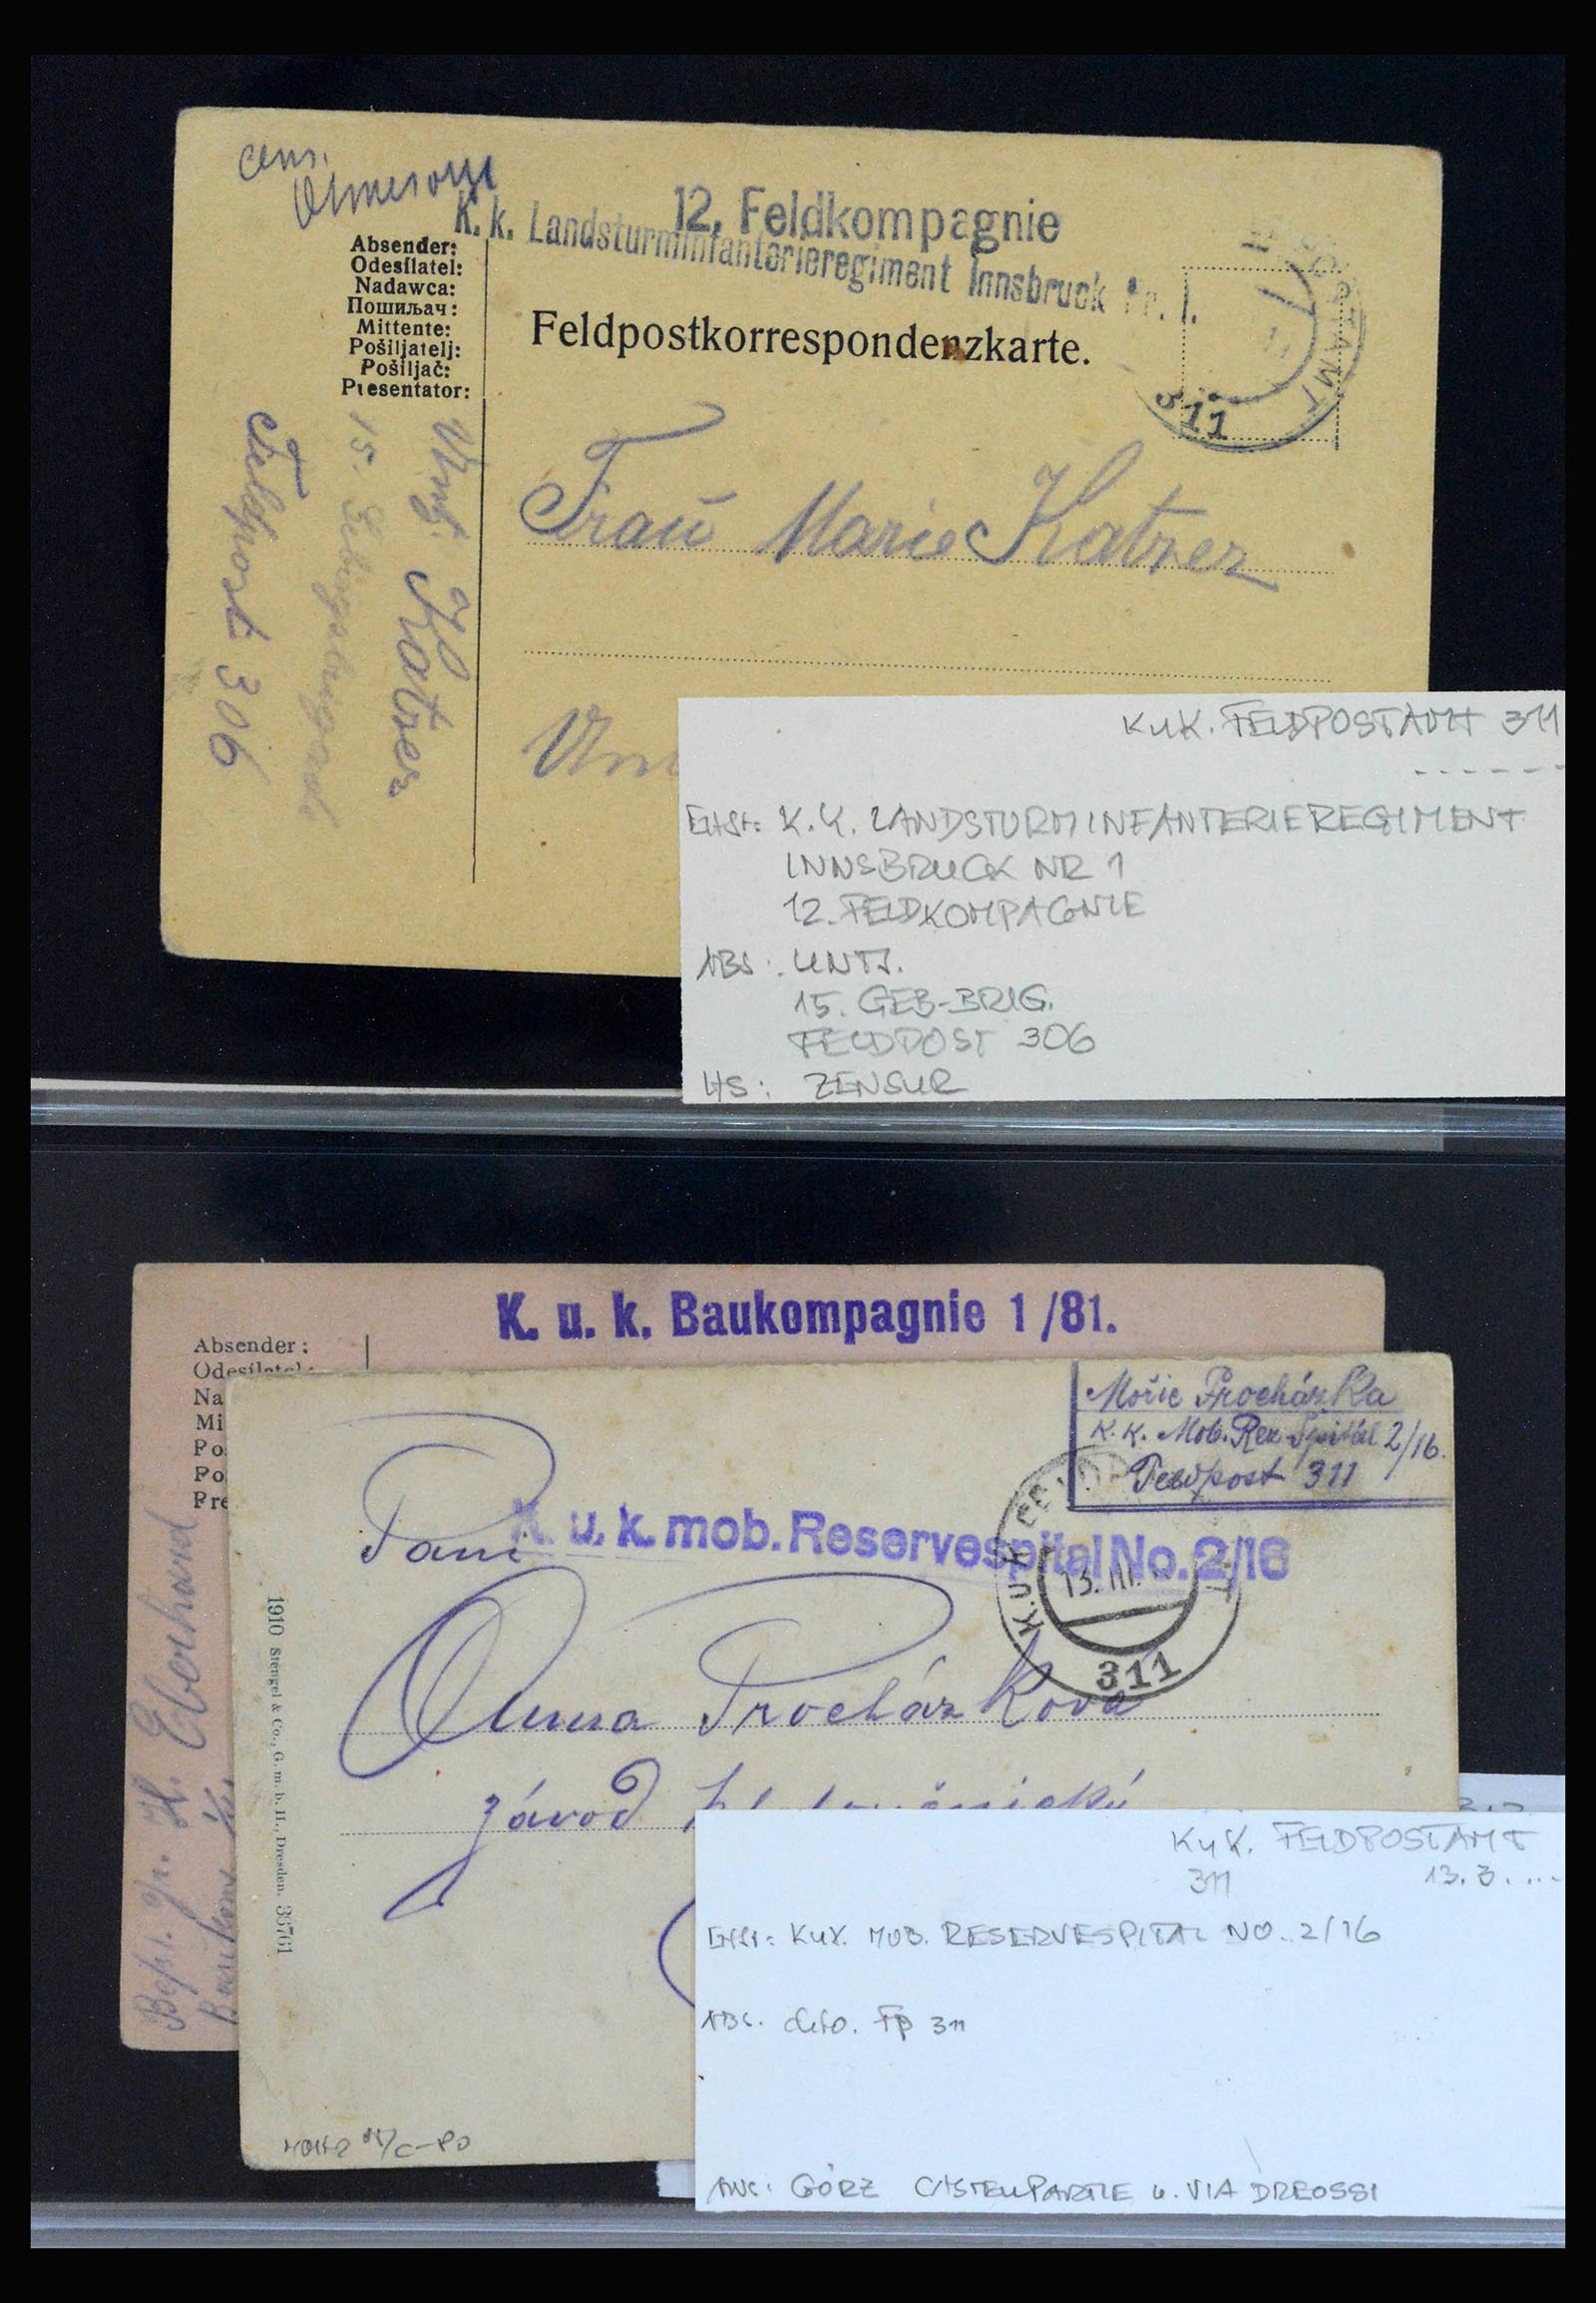 cens.
12. Feldkompagnie
K. k. Landsturminfanterieregiment Innsbruck Nr. 1.
Absender:
Odesílatel:
Nadawca:
Пошиљач:
Mittente:
Pošiljatelj:
Pošiljač:
Presentator:
Feldpostkorrespondenzkarte.
311
Katzer
15. Gebirgsbrigade
Feldpost 306
Frau Marie Katzer
K u K. FELDPOSTAMT 311
------
K. K. LANDSTURMINFANTERIEREGIMENT
INNSBRUCK NR 1
12. FELDKOMPAGNIE
ABS: UNTJ.
15. GEB-BRIG.
FELDPOST 306
HS: ZENSUR
K. u. k. Baukompagnie 1/81.
Absender:
Odesílatel:
Na
Mi
Po
Po
Pre
H. Eberhard
Mořic Procházka
K. K. Mob. Res. Spitál 2/16.
Feldpost 311
K. u. k. mob. Reservespital No. 2/16
K.u.K. FELDP
13. III.
311
Paní
Anna Procházková
závod
1910 Stengel & Co., G. m. b. H., Dresden. 36761
K u K. FELDPOSTAMT
311 13.3. ...
K u K. MOB. RESERVESPITAL NO. 2/16
ABS. dto. Fp 311
GÖRZ CASTELLPARTIE u. VIA DREOSSI